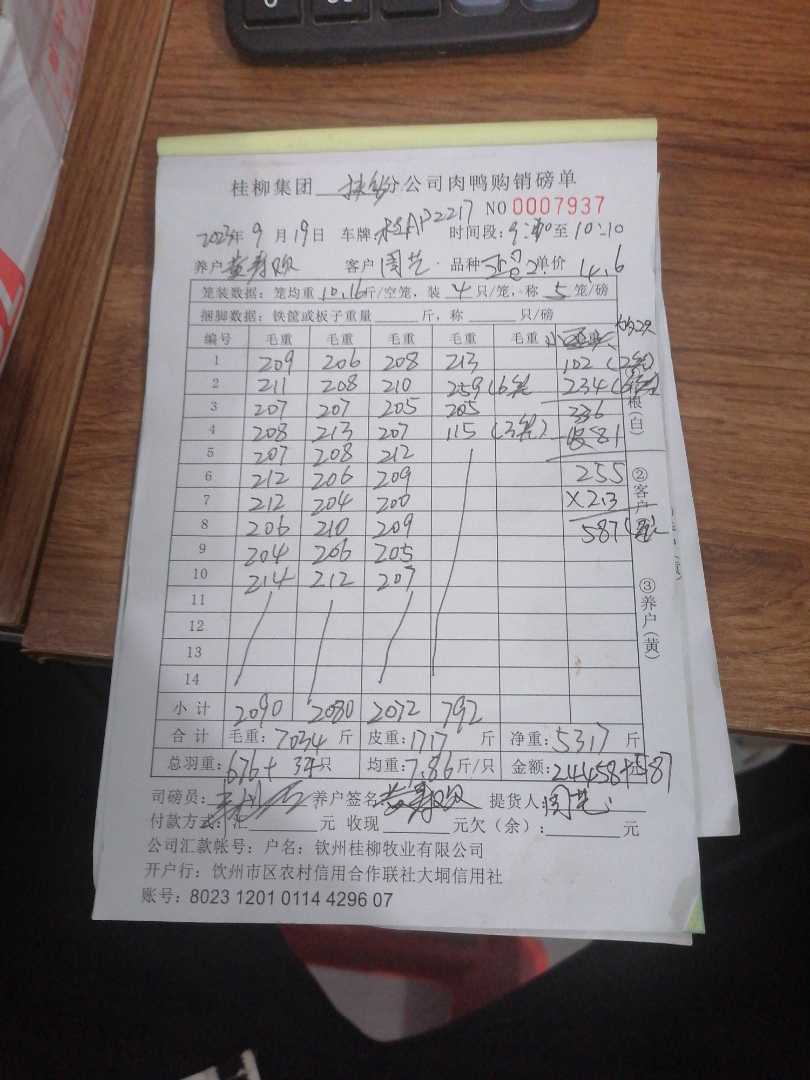 桂柳集团 分公司肉鸭购销磅单
NO 0007937
2023年 9 月 19日 车牌: 桂AP2217 时间段: 至 10:10
养户 客户 周艺 品种 单价 14.6
笼装数据: 笼均重 10.16 斤/空笼, 装 4 只/笼, 称 5 笼/磅
捆脚数据: 铁篦或板子重量 斤, 称 只/磅
编号 毛重 毛重 毛重 毛重 毛重
1 209 206 208 213 102
2 211 208 210 259(6笼) 234
3 207 207 205 205
4 208 213 207 115(3笼)
5 207 208 212
6 212 206 209 255
7 212 204 200 ×2.3
8 206 210 209 587
9 204 206 205
10 214 212 207
11
12
13
14
小计 2090 2080 2072 792
合计 毛重: 7034 斤 皮重: 1717 斤 净重: 5317 斤
总羽重: 676+ 只 均重: 7.86 斤/只 金额: 24458+587
司磅员: 养户签名 提货人: 周艺
付款方式: 汇 元 收现 元欠(余): 元
公司汇款帐号: 户名: 钦州桂柳牧业有限公司
开户行: 钦州市区农村信用合作联社大垌信用社
账号: 8023 1201 0114 4296 07
根(白)
②客户
③养户(黄)